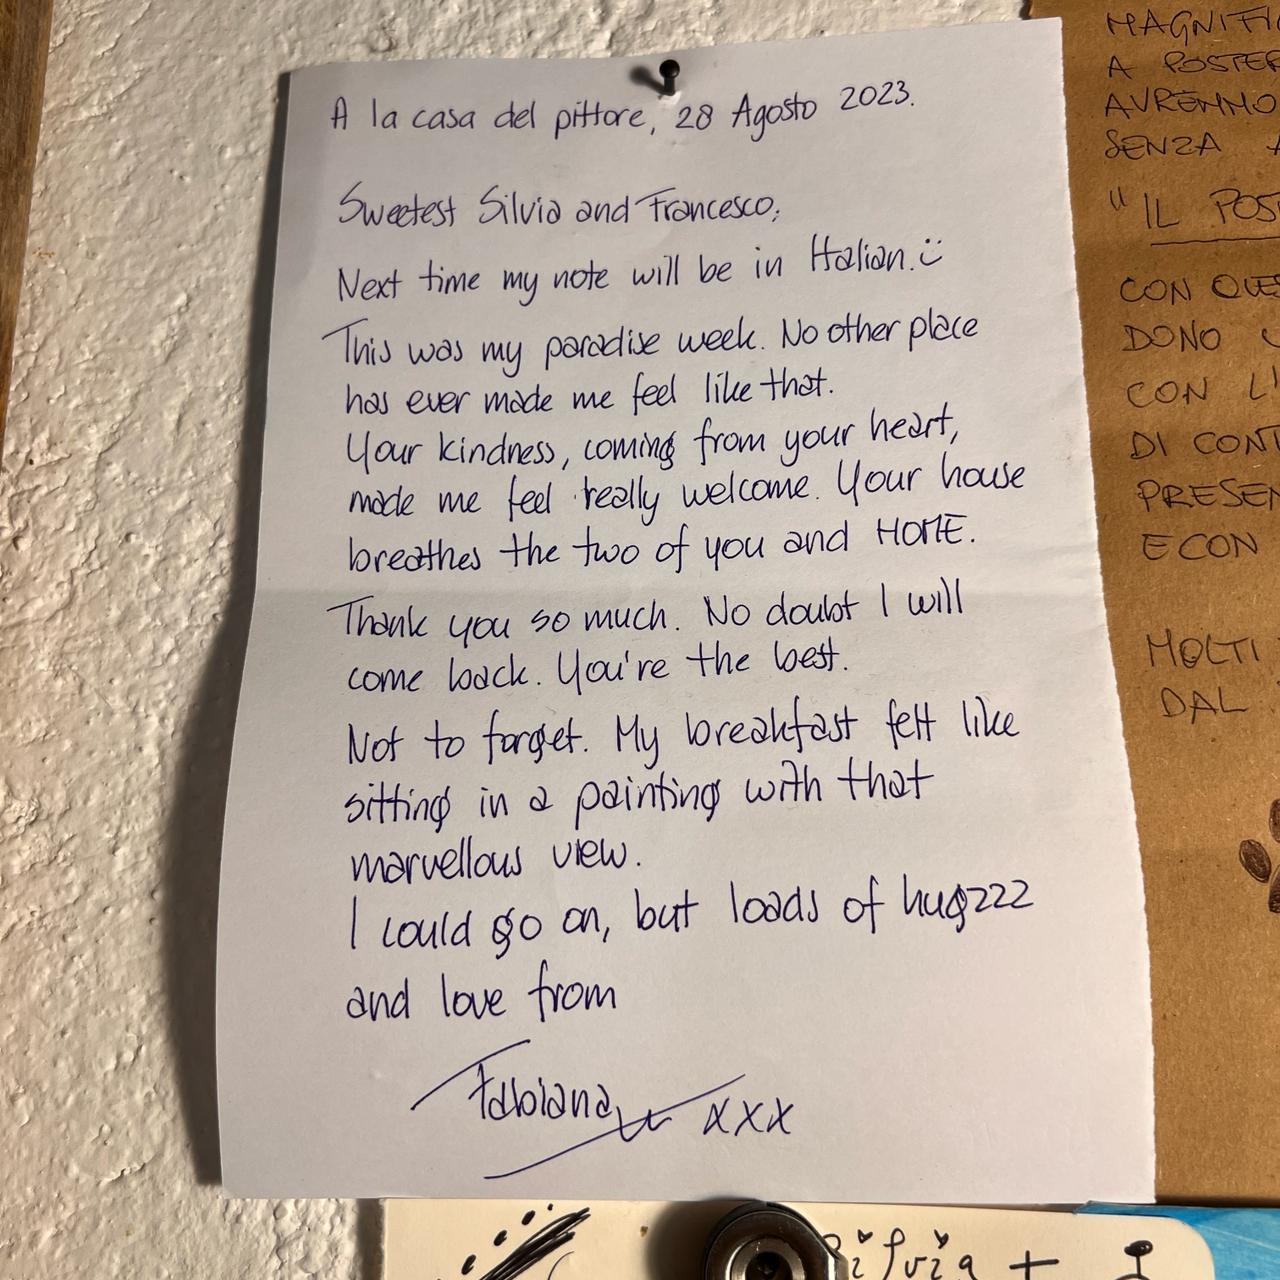 A la casa del pittore, 28 Agosto 2023.
Sweetest Silvia and Francesco,
Next time my note will be in Italian. :)
This was my paradise week. No other place
has ever made me feel like that.
Your kindness, coming from your heart,
made me feel really welcome. Your house
breathes the two of you and HOME.
Thank you so much. No doubt I will
come back. You're the best.
Not to forget. My breakfast felt like
sitting in a painting with that
marvellous view.
I could go on, but loads of hugzzz
and love from
Fabiana xxx
MAGNIFI
A POSTER
AVREMMO
SENZA A
"IL POS
CON QUES
DONO U
CON L'
DI CONT
PRESEN
E CON
MOLTI
DAL
Silvia +